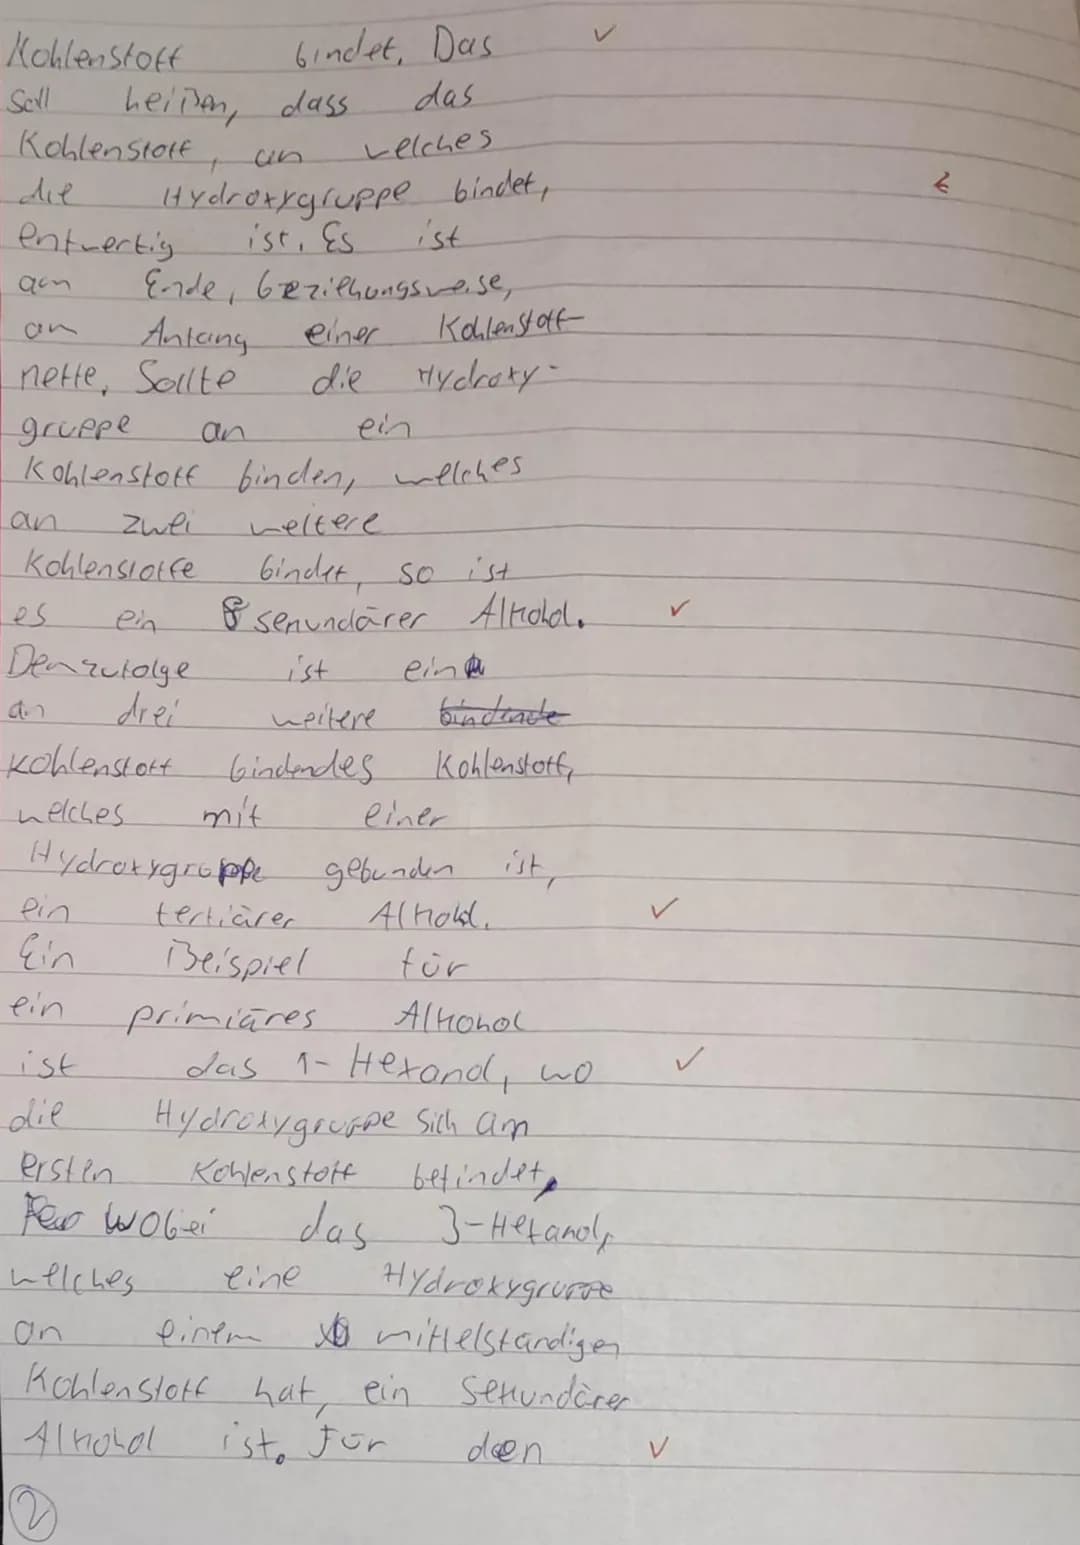 Kohlenstoff bindet. Das
soll heißen, dass das
Kohlenstoff, an welches
die Hydroxygruppe bindet,
entwertig ist. Es ist
am Ende, beziehungsweise,
am Anfang einer Kohlenstoff-
kette. Sollte die Hydroxy-
gruppe an ein
Kohlenstoff binden, welches
an zwei weitere
Kohlenstoffe bindet, so ist
es ein sekundärer Alkohol.
Demzufolge ist ein
an drei weitere bindende
Kohlenstoff bindendes Kohlenstoff,
welches mit einer
Hydroxygruppe gebunden ist,
ein tertiärer Alkohol.
Ein Beispiel für
ein primäres Alkohol
ist das 1-Hexanol, wo
die Hydroxygruppe sich am
ersten Kohlenstoff befindet,
wobei das 3-Hexanol,
welches eine Hydroxygruppe
an einem mittelständigen
Kohlenstoff hat, ein sekundärer
Alkohol ist. Für den
2